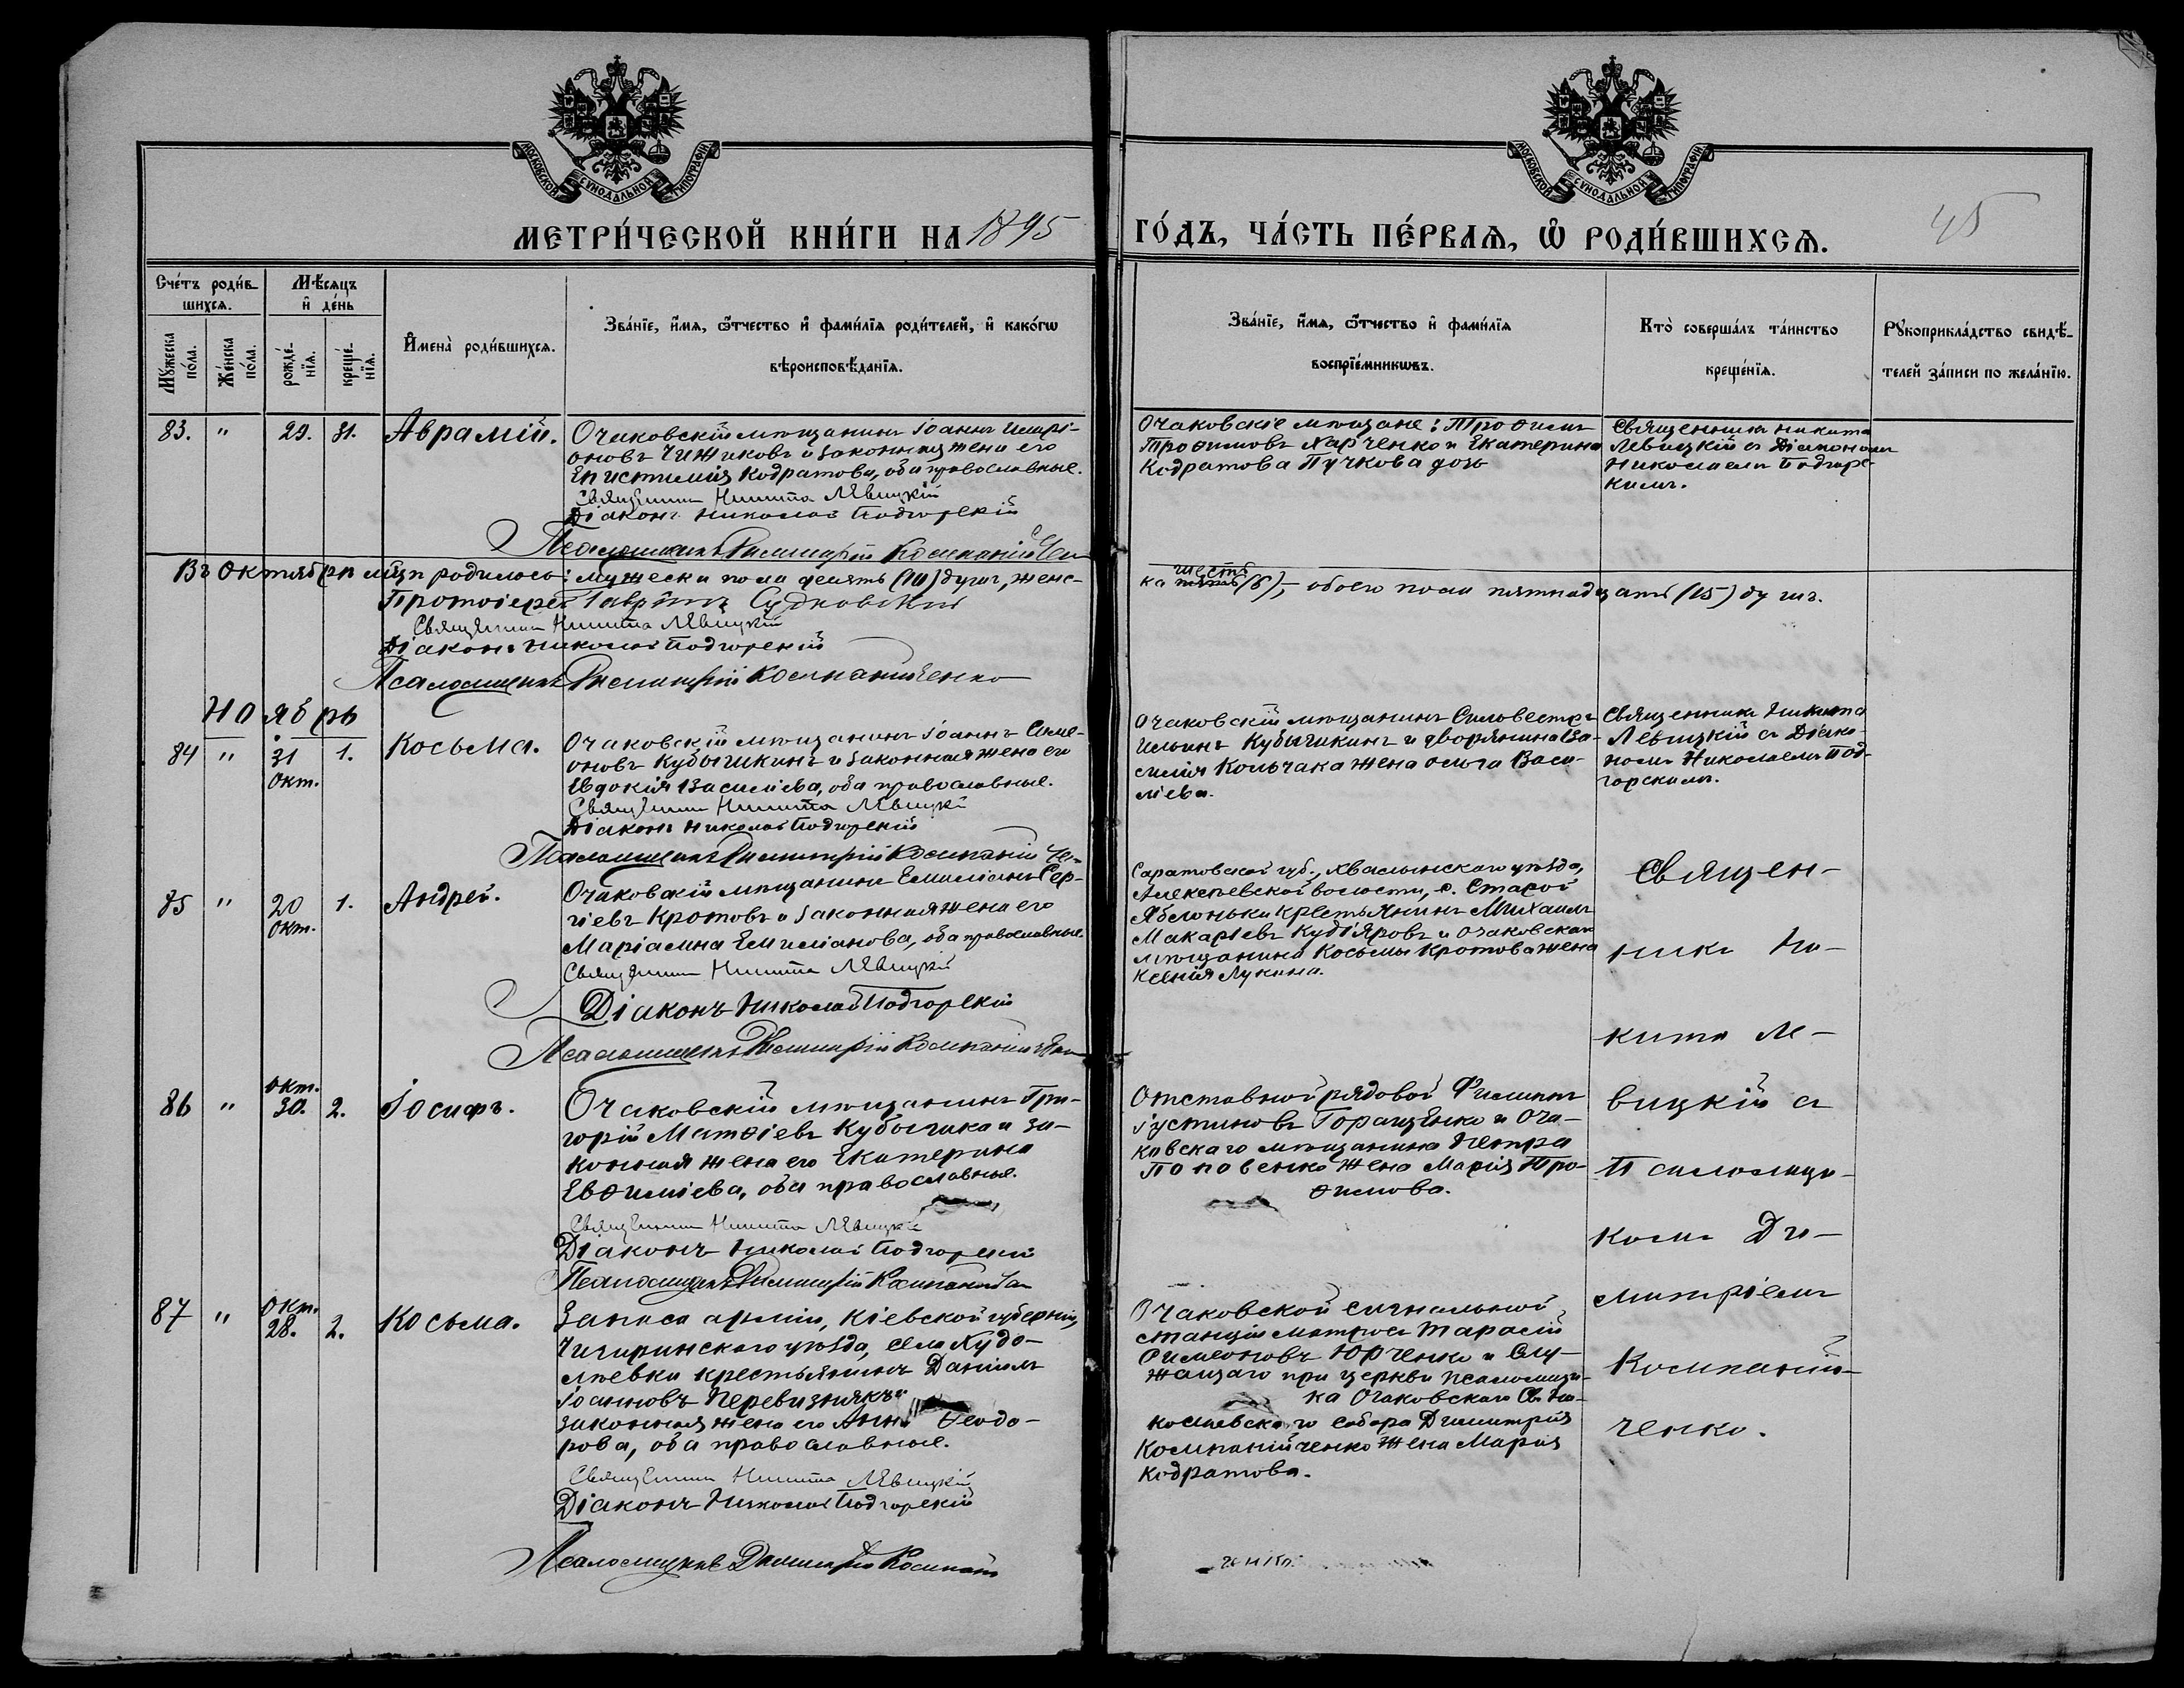 МОСКОВСКОЙ СѴНОДАЛЬНОЙ ТИПОГРАФІИ
МОСКОВСКОЙ СѴНОДАЛЬНОЙ ТИПОГРАФІИ
45
МЕТРИ́ЧЕСКОЙ КНИ́ГИ НА 1895 ГО́ДЪ, ЧА́СТЬ ПЕ́РВАѦ, Ѡ РОДИ́ВШИХСѦ.
Сче́тъ роди́вшихсѧ.
Мꙋ́жеска по́ла.
Же́нска по́ла.
Мѣ́сѧцъ и҆ де́нь
рожде́нїѧ.
креще́нїѧ.
И҆мена̀ роди́вшихсѧ.
Зва́нїе, и҆́мѧ, ѻ҆́тчество и҆ фами́лїѧ роди́телей, и҆ како́гѡ
вѣроисповѣ́данїѧ.
Зва́нїе, и҆́мѧ, ѻ҆́тчество и҆ фами́лїѧ
воспрїе́мникѡвъ.
Кто̀ соверша́лъ та́инство
креще́нїѧ.
Рꙋкоприкла́дство свидѣ́-
телей за́писи по жела́нїю.
83. " 29. 31. Аврамій.
Очаковскій мѣщанинъ Іоаннъ
оновъ Чижиковъ и законная жена его
Епистимія Кодратова, оба православные.
Священникъ Никита Левицкій
Діаконъ Николай Подгорскій
Псаломщикъ Димитрій Компаній
Очаковскіе мѣщане: Трофимъ
Трофимовъ Харченко и Екатерина
Кодратова Пучкова дочь
Священникъ Никита
Левицкій съ Діакономъ
Николаемъ Подгорс-
кимъ.
Въ Октябрѣ мцѣ родилось: мужеска пола девять душъ, женс-
ка шесть (6), обоего пола пятнадцать (15) душъ.
Протоіерей Гавріилъ Судковскій
Священникъ Никита Левицкій
Діаконъ Николай Подгорскій
Псаломщикъ Димитрій Компанійченко
Ноябрь
84 " 31 Окт. 1. Косьма.
Очаковскій мѣщанинъ Іоаннъ Симе-
оновъ Кубышкинъ и законная жена его
Евдокія Василіева, оба православные.
Священникъ Никита Левицкі
Діаконъ Николай Подгорскій
Псаломщикъ Димитрій Компаній Че-
Очаковскій мѣщанинъ Сильвестръ
Ильинъ Кубышкинъ и дворянина Ва-
силія Кольчака жена Ольга Васи-
ліева.
Священникъ Никита
Левицкій съ Діако-
номъ Николаемъ Под-
горскимъ.
85 " 20 Окт. 1. Андрей.
Очаковскій мѣщанинъ Емиліанъ Сер-
гіевъ Кротовъ и законная жена его
Маріамна Емиліанова, оба православные.
Священникъ Никита Левицкій
Діаконъ Николай Подгорскій
Псаломщикъ Димитрій Компаній
Саратовской губ., Хвалынскаго уѣзда,
Алексѣевской волости, с. Старой
Яблоньки крестьянинъ Михаилъ
Макаріевъ Кудіяровъ и Очаковскаго
мѣщанина Косьмы Кротова жена
Ксенія Лукина.
Священ-
никъ Ни-
кита Ле-
вицкій съ
Псаломщи-
комъ Ди-
митріемъ
Компаній-
ченко.
86 " Окт. 30. 2. Іосифъ.
Очаковскій мѣщанинъ Гри-
горій Матѳіевъ Кубышка и за-
конная жена его Екатерина
Евѳиміева, оба православные.
Священникъ Никита Левицкі
Діаконъ Николай Подгорскій
Псаломщикъ Димитрій Компаній
Отставной рядовой Филиппъ
Іустиновъ Горащенко и Оча-
ковскаго мѣщанина Петра
Поповенко жена Марія Тро-
фимова.
87 " Окт. 28. 2. Косьма.
Запаса арміи, Кіевской губерніи,
Чигиринскаго уѣзда, села Худо-
лѣевки крестьянинъ Даніилъ
Іоанновъ Перевизнякъ и
законная жена его Анна Ѳеодо-
рова, оба православные.
Священникъ Никита Левицкій
Діаконъ Николай Подгорскій
Псаломщикъ Димитрій Компаній
Очаковской сигнальной
станціи матросъ Тарасій
Симеоновъ Юрченко и слу-
жащаго при церкви псаломщи-
ка Очаковскаго Св. Ни-
колаевскаго собора Димитрія
Компанійченко жена Марія
Кодратова.